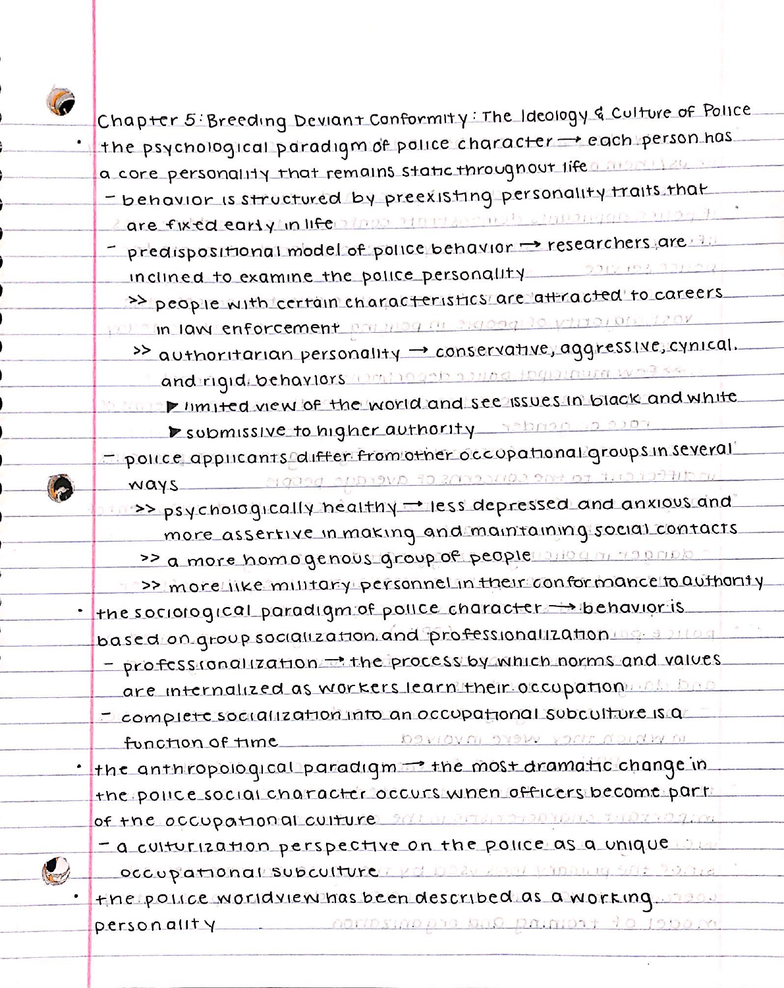 Chapter 5: Breeding Deviant Conformity: The Ideology & Culture of Police
• the psychological paradigm of police character → each person has
a core personality that remains static throughout life
- behavior is structured by preexisting personality traits that
are fixed early in life
- predispositional model of police behavior → researchers are
inclined to examine the police personality
>> people with certain characteristics are attracted to careers
in law enforcement
>> authoritarian personality → conservative, aggressive, cynical,
and rigid behaviors
▶ limited view of the world and see issues in black and white
▶ submissive to higher authority
- police applicants differ from other occupational groups in several
ways
>> psychologically healthy → less depressed and anxious and
more assertive in making and maintaining social contacts
>> a more homogenous group of people
>> more like military personnel in their conformance to authority
• the sociological paradigm of police character → behavior is
based on group socialization and professionalization
- professionalization → the process by which norms and values
are internalized as workers learn their occupation
- complete socialization into an occupational subculture is a
function of time
• the anthropological paradigm → the most dramatic change in
the police social character occurs when officers become part
of the occupational culture
- a culturization perspective on the police as a unique
occupational subculture
• the police worldview has been described as a working
personality